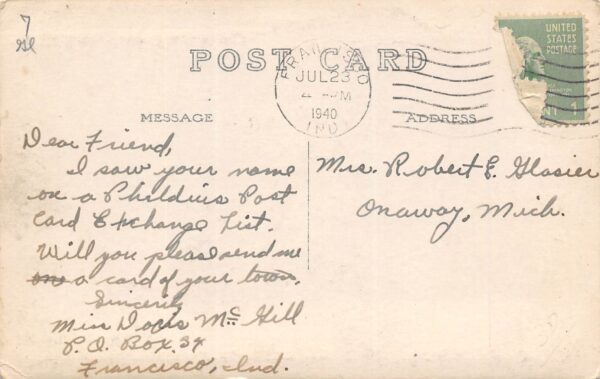 7
UNITED
STATES
POSTAGE
POST CARD
FRANCISCO
JUL 23
PM
1940
IND.
MESSAGE
ADDRESS
1
Dear Friend,
I saw your name
on a Phildius Post
Card Exchange List.
Will you please send me
one a card of your town.
Sincerely
Miss Doris McGill
P.O. Box 34
Francisco, Ind.
Mrs. Robert E. Glasier
Onaway, Mich.